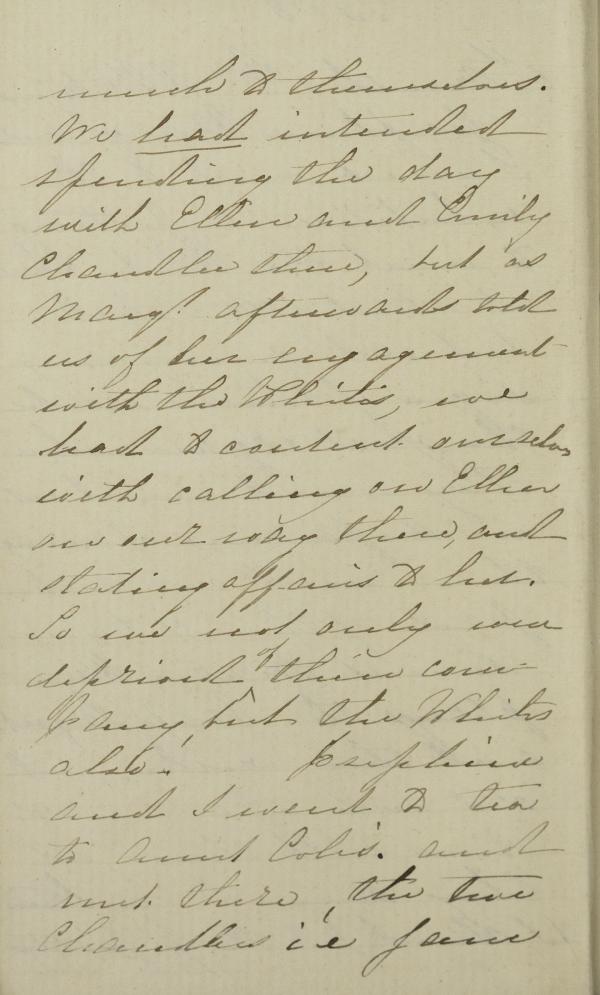 much to themselves.
We had intended
spending the day
with Ellen and Emily
Chandler there, but as
Margt. afterwards told
us of her engagement
with the Whites, we
had to content ourselves
with calling on Ellen
on our way there, and
stating affairs to her.
So we not only were
deprived of their com-
pany, but the Whites
also. Josephine
and I went to tea
to Aunt and
met there, the two
Chandlers i.e Jane